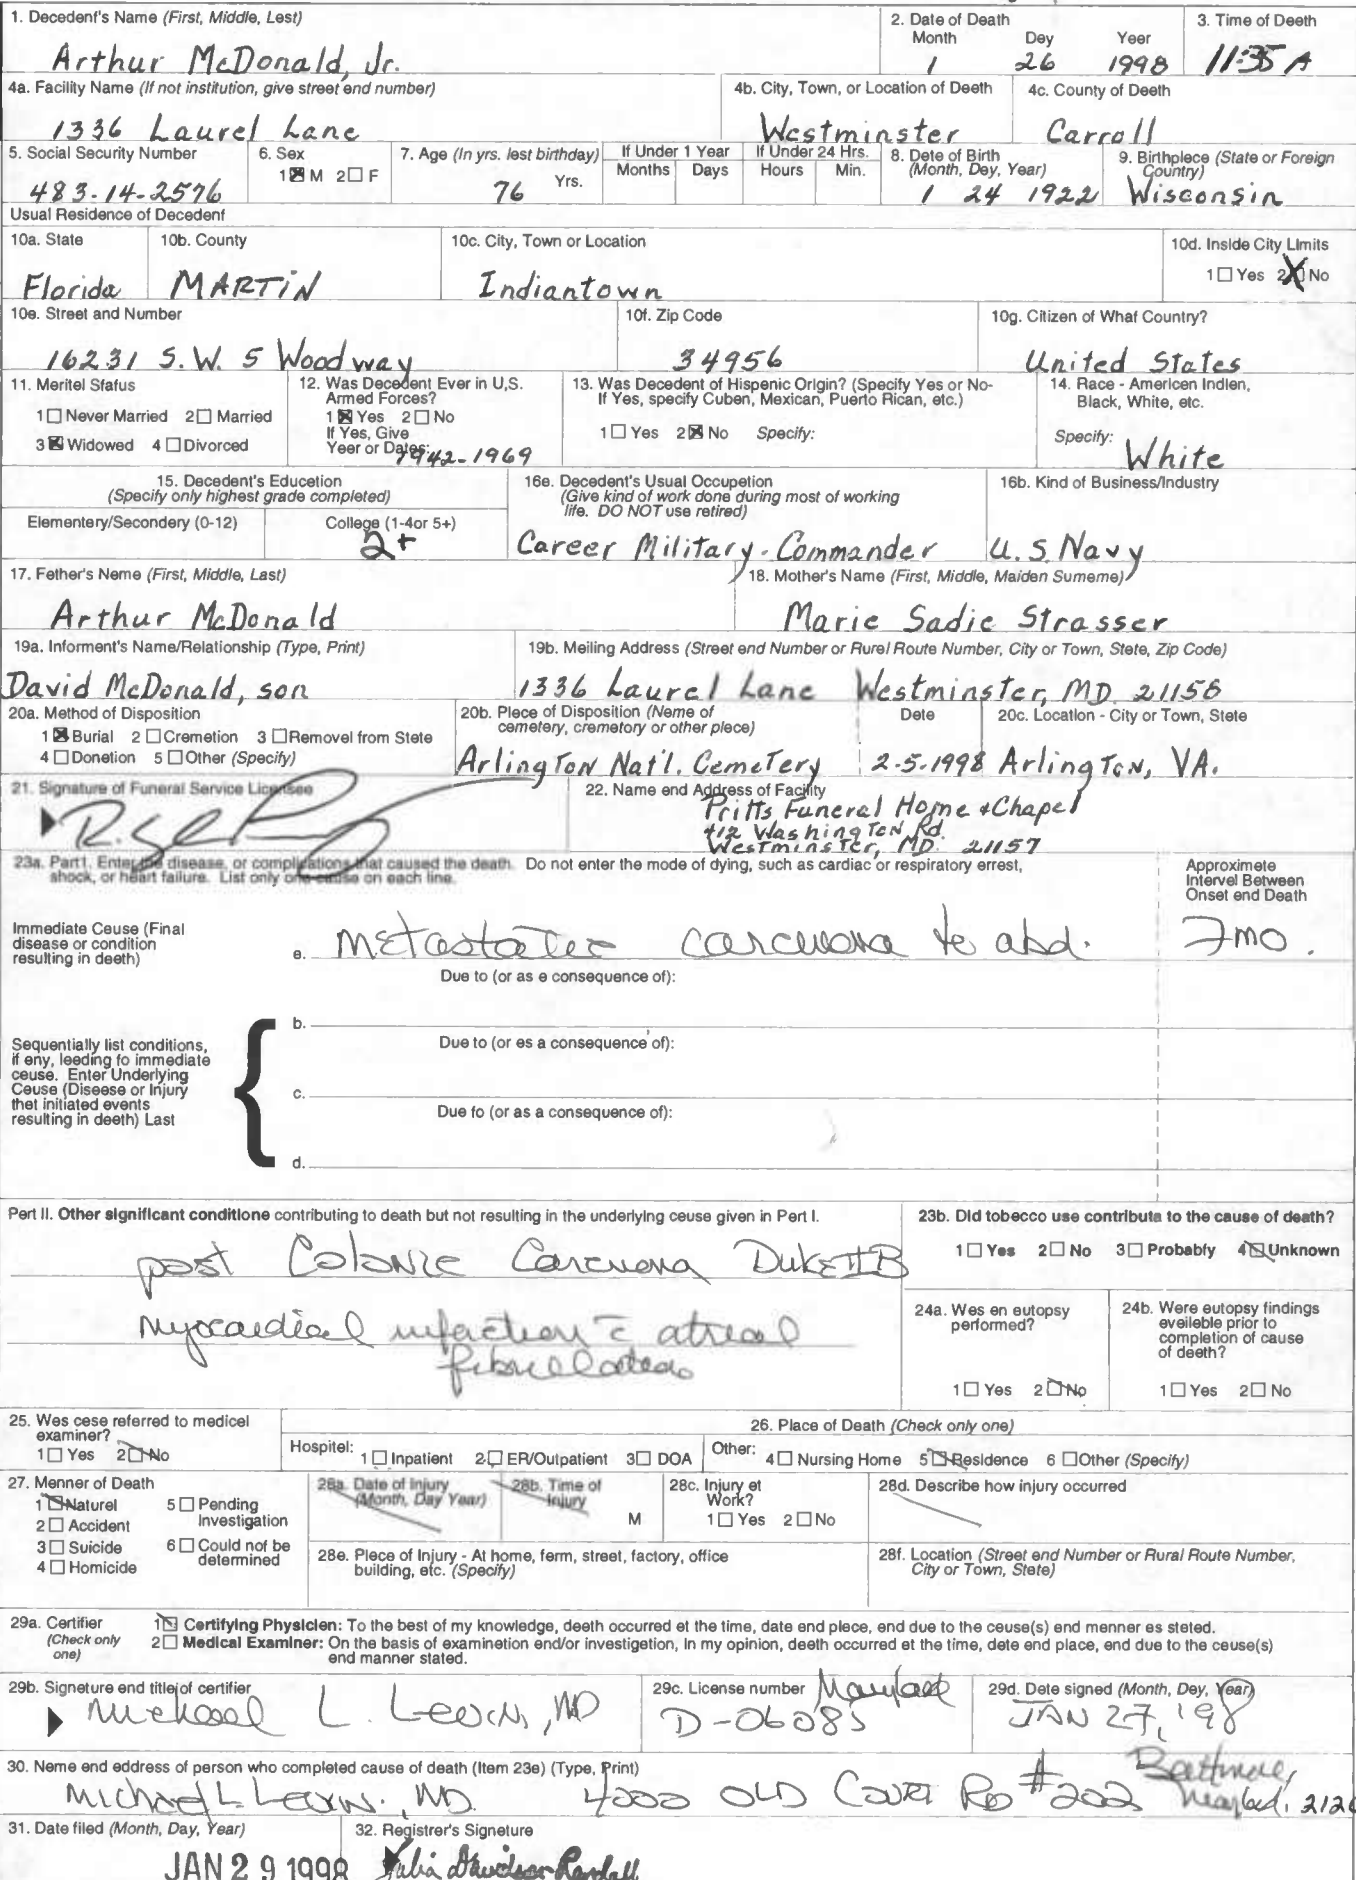 1. Decedent's Name (First, Middle, Lest)
Arthur McDonald, Jr.
2. Date of Death
Month Dey Yeer
1 26 1998
3. Time of Deeth
11:35 A
4a. Facility Name (If not institution, give street end number)
1336 Laurel Lane
4b. City, Town, or Location of Deeth
Westminster
4c. County of Deeth
Carroll
5. Social Security Number
483-14-2576
6. Sex
1☒ M 2☐ F
7. Age (In yrs. lest birthday)
76 Yrs.
If Under 1 Year
Months Days
If Under 24 Hrs.
Hours Min.
8. Dete of Birth
(Month, Dey, Year)
1 24 1922
9. Birthplece (State or Foreign
Country)
Wisconsin
Usual Residence of Decedenf
10a. State
Florida
10b. County
MARTIN
10c. City, Town or Location
Indiantown
10d. Inside City Limits
1☐ Yes 2☒ No
10e. Street and Number
16231 S.W. 5 Woodway
10f. Zip Code
34956
10g. Citizen of Whaf Country?
United States
11. Meritel Sfatus
1☐ Never Married 2☐ Married
3☒ Widowed 4☐ Divorced
12. Was Decedent Ever in U,S.
Armed Forces?
1☒ Yes 2☐ No
If Yes, Give
Yeer or Dates:
1942-1969
13. Was Decedent of Hispenic Origin? (Specify Yes or No-
If Yes, specify Cuben, Mexican, Puerto Rican, etc.)
1☐ Yes 2☒ No Specify:
14. Race - Americen Indien,
Black, White, etc.
Specify: White
15. Decedent's Education
(Specify only highest grade completed)
Elementery/Secondery (0-12)
College (1-4or 5+)
2+
16e. Decedent's Usual Occupetion
(Give kind of work done during most of working
life. DO NOT use retired)
Career Military-Commander
16b. Kind of Business/Industry
U.S. Navy
17. Fether's Neme (First, Middle, Last)
Arthur McDonald
18. Mother's Name (First, Middle, Maiden Sumeme)
Marie Sadie Strasser
19a. Informent's Name/Relationship (Type, Print)
David McDonald, son
19b. Meiling Address (Street end Number or Rurel Route Number, City or Town, Stete, Zip Code)
1336 Laurel Lane Westminster, MD. 21158
20a. Method of Disposition
1☒ Burial 2☐ Cremetion 3☐ Removel from Stete
4☐ Donetion 5☐ Other (Specify)
20b. Plece of Disposition (Neme of
cemetery, cremetory or other piece)
Arlington Nat'l. Cemetery
Dete
2-5-1998
20c. Location - City or Town, Stete
Arlington, VA.
21. Signature of Funeral Service Licensee
22. Name end Address of Facility
Pritts Funeral Home & Chapel
412 Washington Rd.
Westminster, MD. 21157
23a. Part I. Enter the disease, or complications that caused the death. Do not enter the mode of dying, such as cardiac or respiratory errest,
shock, or heart failure. List only one cause on each line.
Approximete
Intervel Between
Onset end Death
Immediate Ceuse (Final
disease or condition
resulting in death)
e. Metastatic carcinoma to abd.
7mo.
Due to (or as e consequence of):
b.
Due to (or es a consequence of):
Sequentially list conditions,
if eny, leeding fo immediate
ceuse. Enter Underlying
Ceuse (Diseese or Injury
thet initiated events
resulting in deeth) Last
c.
Due fo (or as a consequence of):
d.
Part II. Other significant conditione contributing to death but not resulting in the underlying ceuse given in Pert I.
post Colonic Carcinoma Duke II B
Myocardial infaction c̄ atrial
fibrillation
23b. Did tobecco use contributa to the cause of death?
1☐ Yes 2☐ No 3☐ Probabfy 4☒ Unknown
24a. Wes en eutopsy
performed?
1☐ Yes 2☒ No
24b. Were eutopsy findings
eveileble prior to
completion of cause
of deeth?
1☐ Yes 2☐ No
25. Wes cese referred to medicel
examiner?
1☐ Yes 2☒ No
26. Place of Death (Check only one)
Hospitel: 1☐ Inpatient 2☐ ER/Outpatient 3☐ DOA
Other: 4☐ Nursing Home 5☒ Residence 6☐ Other (Specify)
27. Menner of Death
1☒ Naturel
2☐ Accident
3☐ Suicide
4☐ Homicide
5☐ Pending
Investigation
6☐ Could nof be
determined
28a. Date of Injury
(Month, Day Year)
28b. Time of
Injury
M
28c. Injury et
Work?
1☐ Yes 2☐ No
28d. Describe how injury occurred
28e. Plece of Injury - At home, ferm, street, factory, office
building, etc. (Specify)
28f. Location (Street end Number or Rural Route Number,
City or Town, Stete)
29a. Certifier
(Check only
one)
1☒ Certifying Physicien: To the best of my knowledge, deeth occurred et the time, date end plece, end due to the ceuse(s) end menner es steted.
2☐ Medical Examiner: On the basis of examinetion end/or investigetion, In my opinion, deeth occurred et the time, dete end place, end due to the ceuse(s)
end manner stated.
29b. Signeture end title of certifier
Michael L. Levin, MD
29c. License number
Maryland
D-06085
29d. Dete signed (Month, Dey, Year)
JAN 27, '98
30. Neme end eddress of person who completed cause of death (Item 23e) (Type, Print)
Michael L. Levin, MD. 4000 OLD Court Rd #202 Baltimore,
Maryland, 2120
31. Date filed (Month, Day, Year)
JAN 29 1998
32. Registrer's Signeture
Julia Davidson-Randall